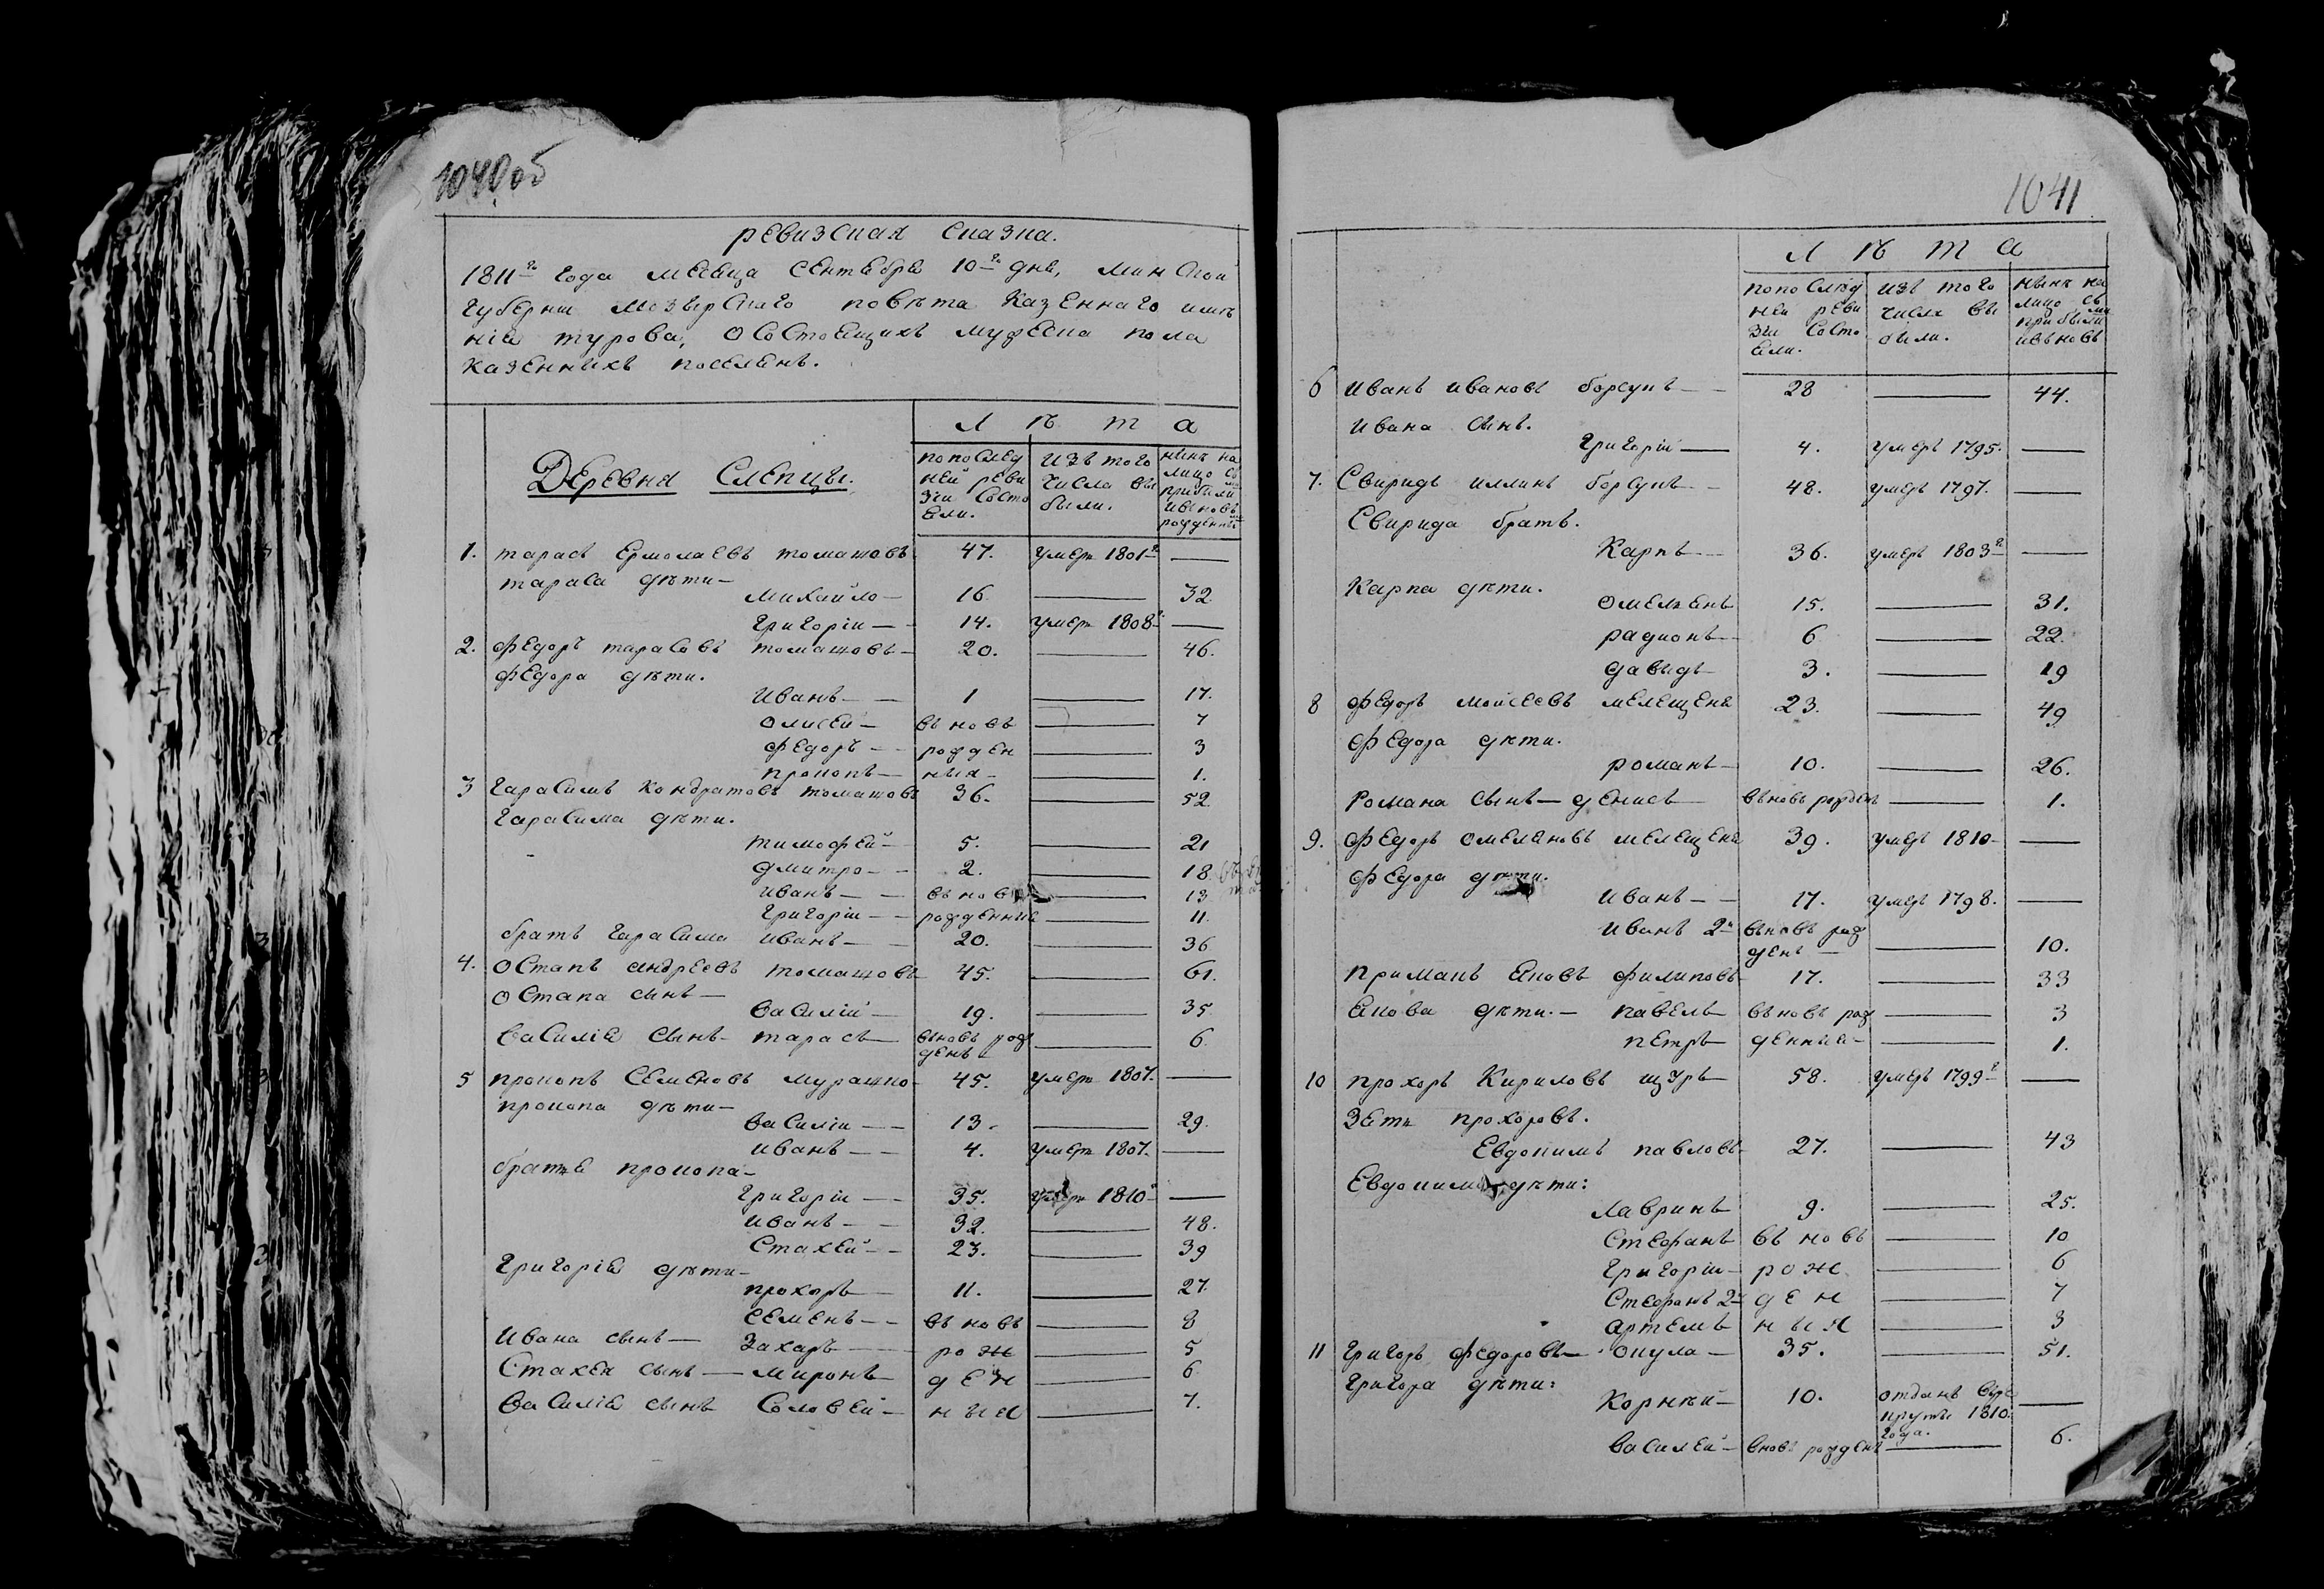 1040об
ревизская сказка.
1811го года месяца сентября 10го дня, минской
губернии мозырскаго повѣта казеннаго имѣ
нія турова, о состоящихъ мужеска пола
казеннихъ поселянъ.
Деревня Слепцы.
Л ѣ т а
по послед
ней реви
зии состо
яли.
изъ того
числа вы
были.
нынѣ на
лицо съ
прибыли
и вновь
рожденны
1. тарасъ Ермолаевъ томашовъ 47. умеръ 1801г —
тараса дѣти —
михайло — 16. — 32
григоріи — 14. умеръ 1808г —
2. федоръ тарасовъ томашовъ — 20. — 46.
федора дѣти.
иванъ — 1 — 17.
олисеи — въновь — 7
федоръ — рожден — 3
прокопъ — ныя — 1.
3 гарасимъ кондратовъ томашовъ 36. — 52
гарасима дѣти.
тимофей — 5. — 21
дмитро — 2. — 18
иванъ — вънов — 13
григоріи — рожденные — 11.
братъ гарасима иванъ — 20. — 36
4. остапъ андреевъ томашовъ 45. — 61.
остапа сынъ —
василій — 19. — 35
василія сынъ — тарасъ вьновь рож
денъ — 6.
5 прокопъ семеновъ мурашко 45. умеръ 1807. —
прокопа дѣти —
василіи — 13. — 29.
иванъ — 4. умеръ 1807. —
братья прокопа —
григоріи — 35. умеръ 1810г —
иванъ — 32. — 48.
стахей — 23. — 39
григорія дѣти —
прохоръ — 11. — 27.
семенъ — въ новь — 8
ивана сынъ — захаръ — рож — 5
стахея сынъ — миронъ — ден — 6
василія сынъ соловей — ныя — 7.
1041
Л ѣ т а
по послѣд
ней реви
зии состо
яли.
изъ того
числа вы
были.
нынѣ на
лицо съ
прибыли
и вьновь
6 иванъ ивановъ борсукъ — 28 — 44.
ивана сынъ.
григоріи — 4. умеръ 1795. —
7. Свиридъ иллинъ борсукъ — 48. умеръ 1797. —
Свирида братъ.
Карпъ — 36. умеръ 1803г —
Карпа дѣти.
омельянъ 15. — 31.
радионъ — 6 — 22.
давыдъ — 3. — 19
8 федоръ моисеевъ мелещеня 23. — 49
федора дѣти.
романъ — 10. — 26.
романа сынъ — денисъ — вьновь рожденъ — 1.
9. федоръ омеляновъ мелещеня 39. умеръ 1810 — —
федора дѣти.
иванъ — 17. умеръ 1798. —
иванъ 2й вьновь рож
денъ — 10.
примакъ яковъ филиповъ 17. — 33
якова дѣти. — павелъ въновь рож — 3
петръ денныя — 1.
10 прохоръ Кириловъ щуръ — 58. умеръ 1799г —
зять прохоровъ.
Евдокимъ павловъ — 27. — 43
Евдокима дѣти:
лавринъ 9. — 25.
стефанъ въ новь — 10
григоріи — рож — 6
стефанъ 2й ден — 7
артемъ ныя — 3
11 григоръ федоровъ — окула — 35. — 51.
григора дѣти:
Корнѣй — 10. отданъ въре
круты 1810
года. —
василей — вновь рожденъ — 6.